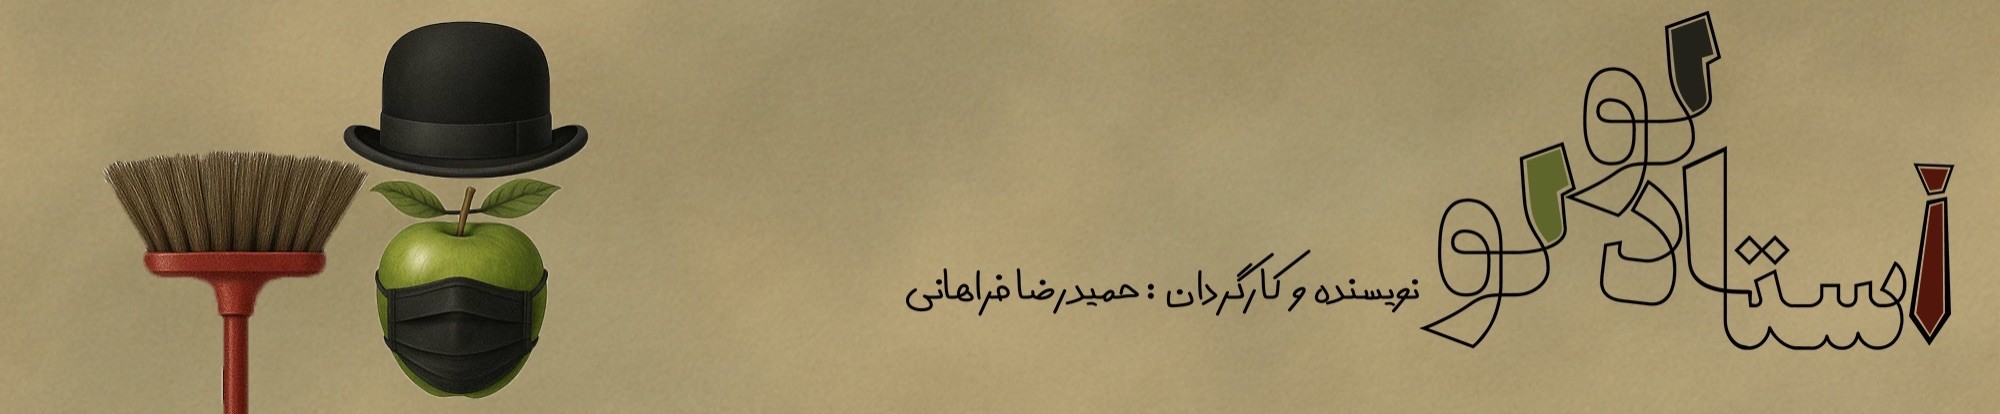 استاد لولو
نویسنده و کارگردان : حمیدرضا فراهانی